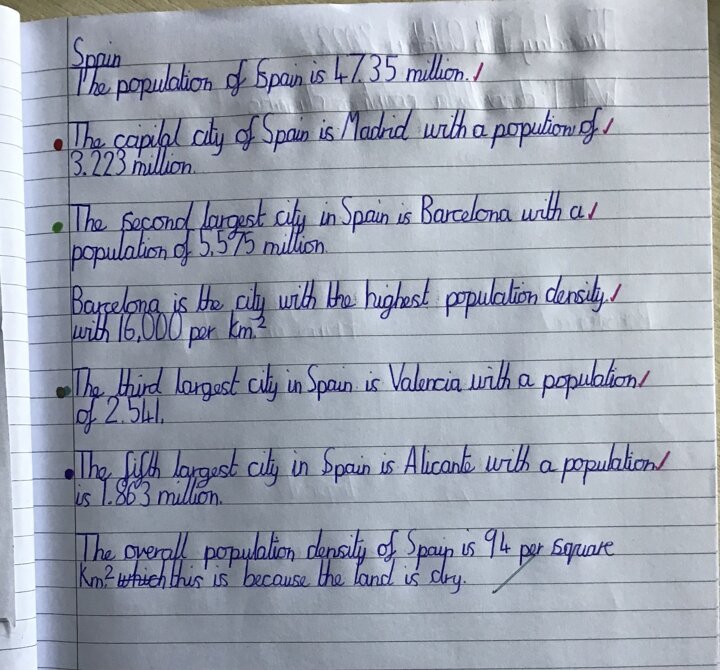 Spain
The population of Spain is 47.35 million.
The capital city of Spain is Madrid with a popution of
3.223 million.
The second largest city in Spain is Barcelona with a
population of 5,575 million.
Barcelona is the city with the highest population density.
with 16,000 per km.²
The third largest city in Spain is Valencia with a population
of 2.541.
The fifth largest city in Spain is Alicante with a population
is 1.863 million.
The overall population density of Spain is 94 per square
Km.² which this is because the land is dry.